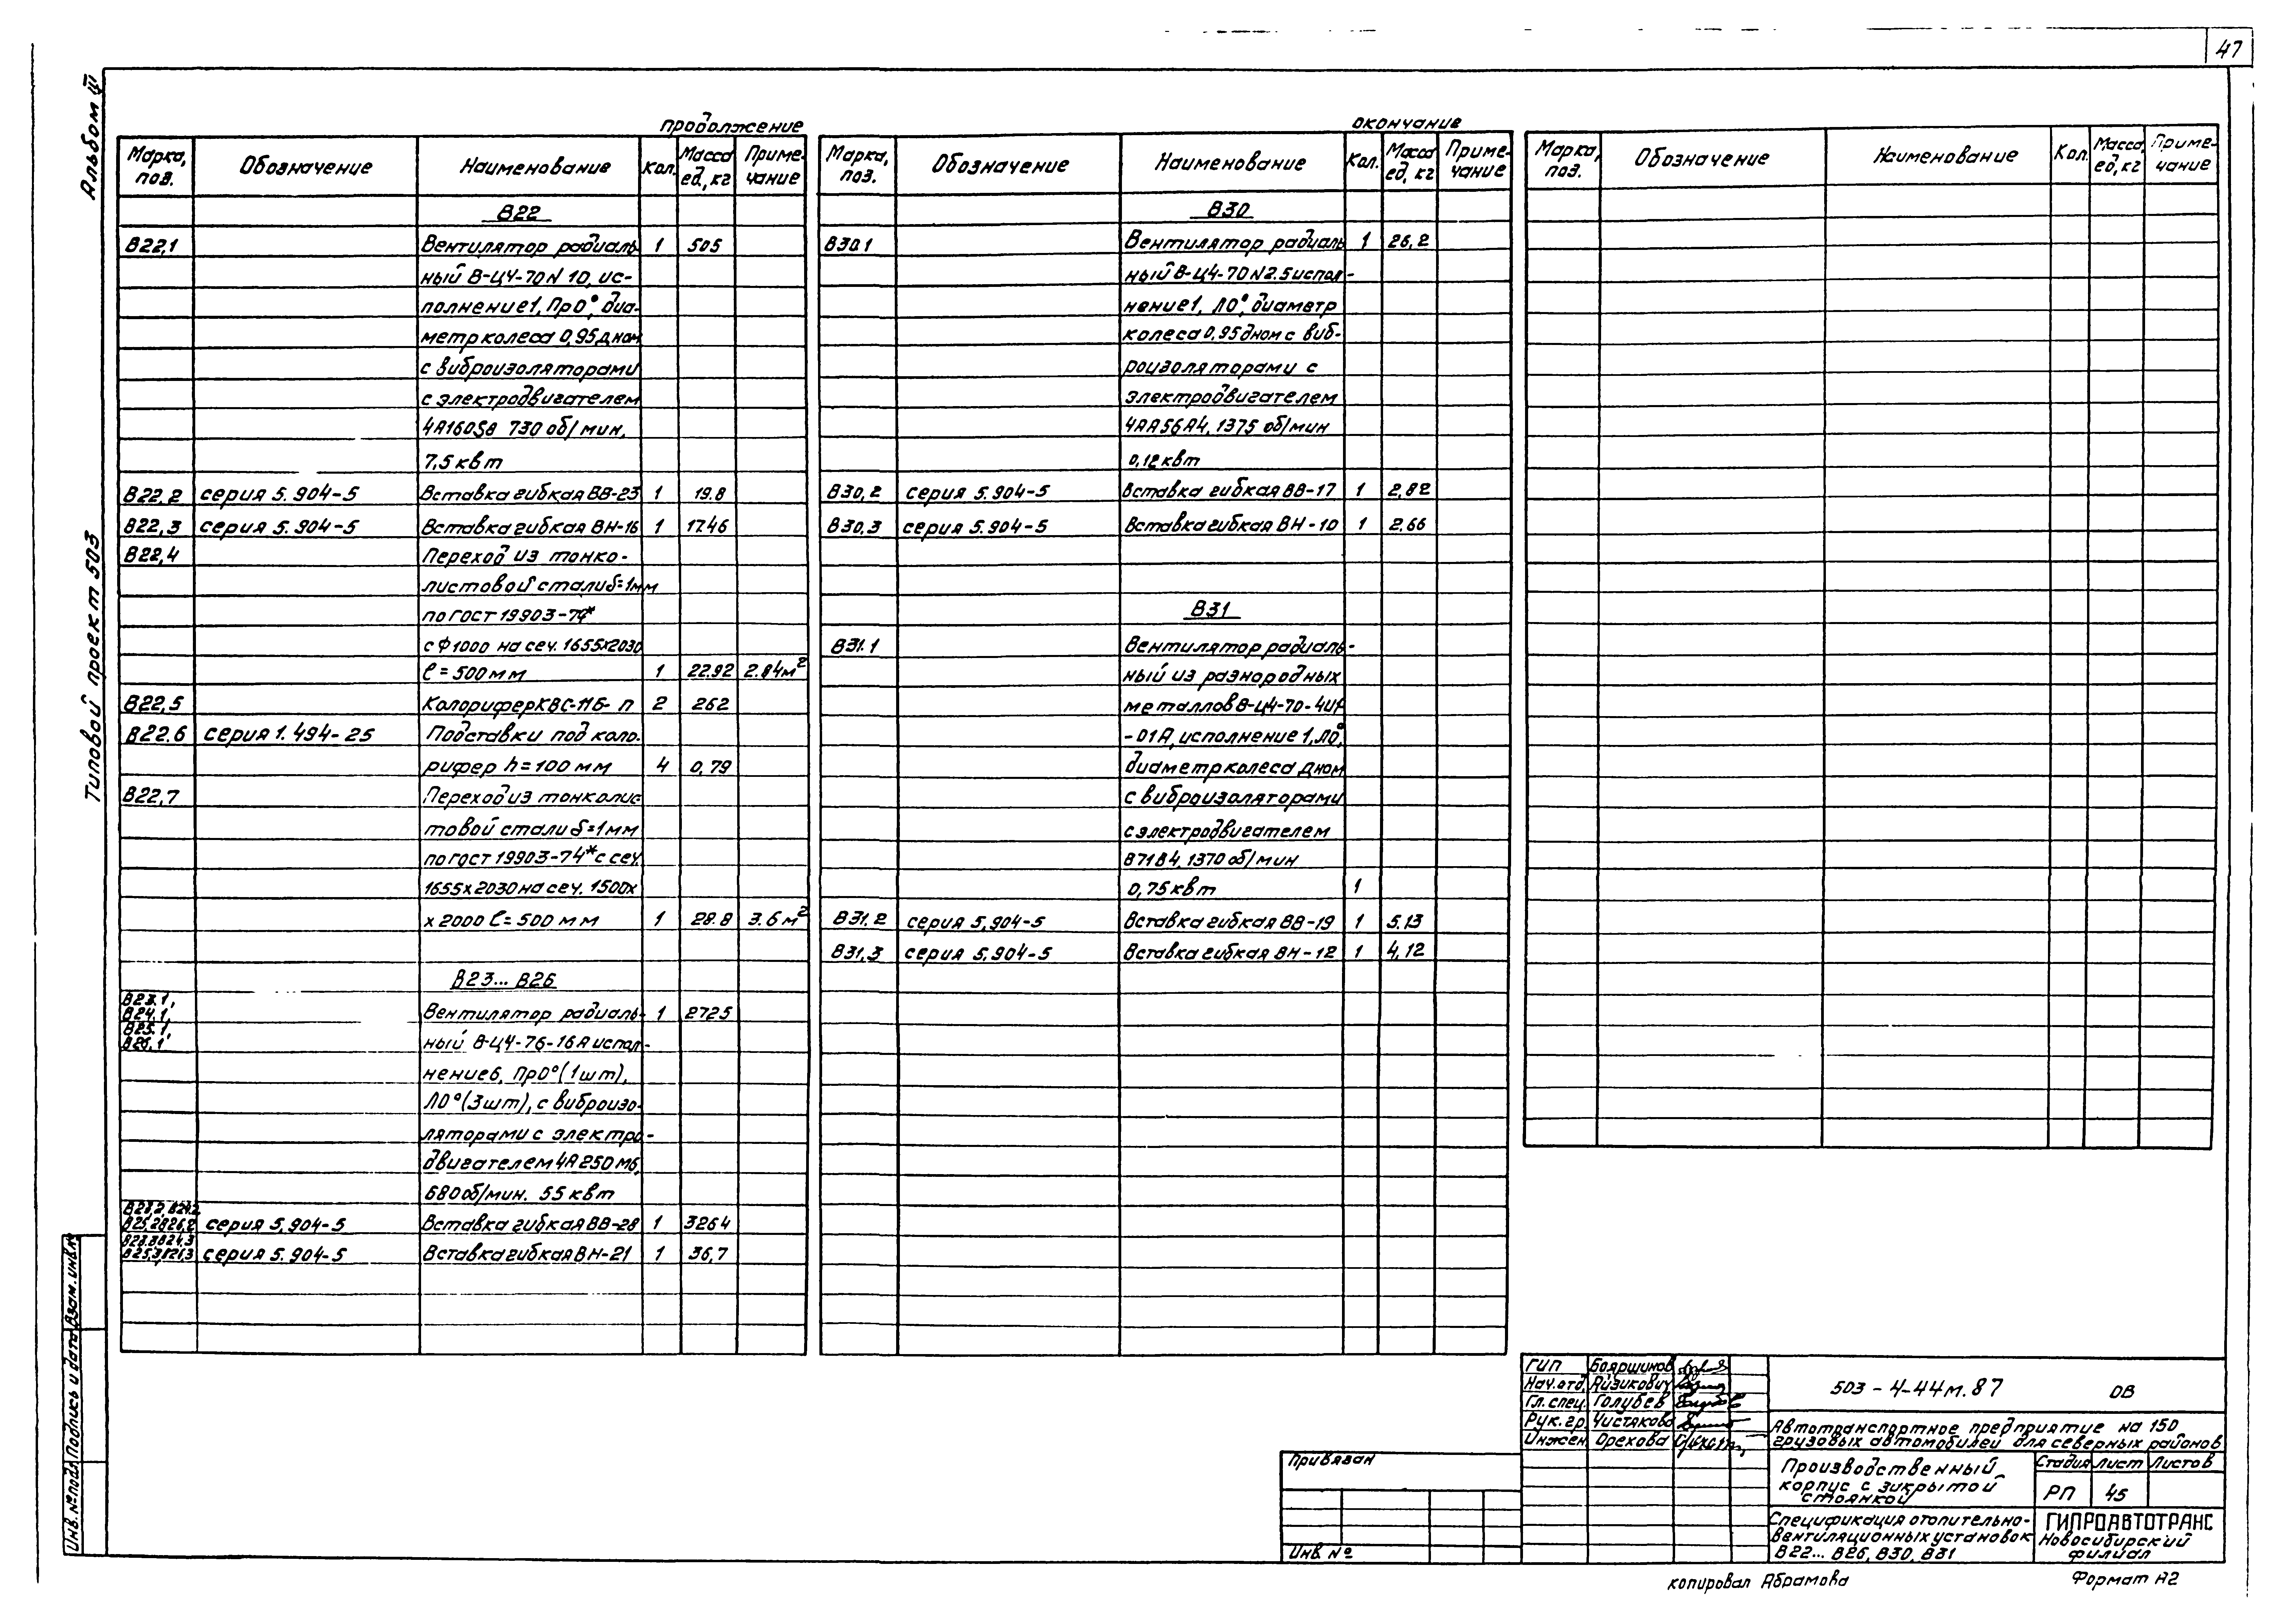 47
Альбом IV
Типовой проект 503
продолжение
Марка, поз. Обозначение Наименование Кол. Масса ед, кг Примечание
В22
В22,1 Вентилятор радиаль 1 505
ный В-Ц4-70 N 10, ис-
полнение 1, Пр0°, диа-
метр колеса 0,95 дном
с виброизоляторами
с электродвигателем
4А160S8 730 об/мин,
7,5 квт
В22,2 серия 5.904-5 Вставка гибкая ВВ-23 1 19.8
В22,3 серия 5.904-5 Вставка гибкая ВН-16 1 17.46
В22,4 Переход из тонко-
листовой стали δ=1мм
по ГОСТ 19903-74*
с Ф1000 на сеч. 1655х2030
ℓ=500мм 1 22.92 2.84м²
В22,5 Калорифер КВС-11Б-п 2 262
В22.6 серия 1.494-25 Подставки под кало-
рифер h=100 мм 4 0,79
В22,7 Переход из тонколис
товой стали δ=1мм
по ГОСТ 19903-74* с сеч.
1655х2030 на сеч. 1500х
х2000 ℓ=500 мм 1 28.8 3.6м²
В23... В26
В23.1, В24.1, В25.1, В26.1 Вентилятор радиаль- 1 2725
ный В-Ц4-76-16А испол-
нение6, Пр0°(1шт),
Л0°(3шт), с виброизо-
ляторами с электро-
двигателем 4А250М6,
680об/мин. 55 квт
В23,2, В24.2 В25,2 В26,2 серия 5.904-5 Вставка гибкая ВВ-28 1 3264
В23.3 В24,3 В25,3 В26,3 серия 5.904-5 Вставка гибкая ВН-21 1 36,7
окончание
Марка, поз. Обозначение Наименование Кол. Масса ед, кг Примечание
В30
В30.1 Вентилятор радиаль 1 26,2
ный В-Ц4-70 N2.5 испол-
нение1, Л0°, диаметр
колеса 0,95 дном с виб-
роизоляторами с
электродвигателем
4АА56А4, 1375 об/мин
0,12квт
В30,2 серия 5.904-5 Вставка гибкая ВВ-17 1 2,82
В30,3 серия 5.904-5 Вставка гибкая ВН-10 1 2.66
В31
В31.1 Вентилятор радиаль-
ный из разнородных
металлов В-Ц4-70-4И1
-01А, исполнение 1, Л0°,
диаметр колеса дном
с виброизоляторами
с электродвигателем
В71В4, 1370 об/мин
0,75квт 1
В31.2 серия 5.904-5 Вставка гибкая ВВ-19 1 5.13
В31,3 серия 5.904-5 Вставка гибкая ВН-12 1 4,12
Марка, поз. Обозначение Наименование Кол. Масса ед, кг Примечание
Инв. № подл. Подпись и дата Взам. инв. №
Привязан
Инв №
ГИП Бояршинов
Нач.отд. Айзикович
Гл.спец. Голубев
Рук.гр. Чистякова
Инжен. Орехова
503-4-44м.87 ОВ
Автотранспортное предприятие на 150
грузовых автомобилей для северных районов
Производственный
корпус с закрытой
стоянкой
Стадия Лист Листов
РП 45
Спецификация отопительно-
вентиляционных установок
В22... В26, В30, В31
ГИПРОАВТОТРАНС
Новосибирский
филиал
копировал Абрамова
Формат А2